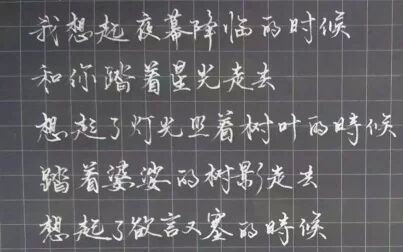 我想起夜幕降临的时候
和你踏着星光走去
想起了灯光照着树叶的時候
踏着婆娑的树影走去
想起了欲言又塞的時候